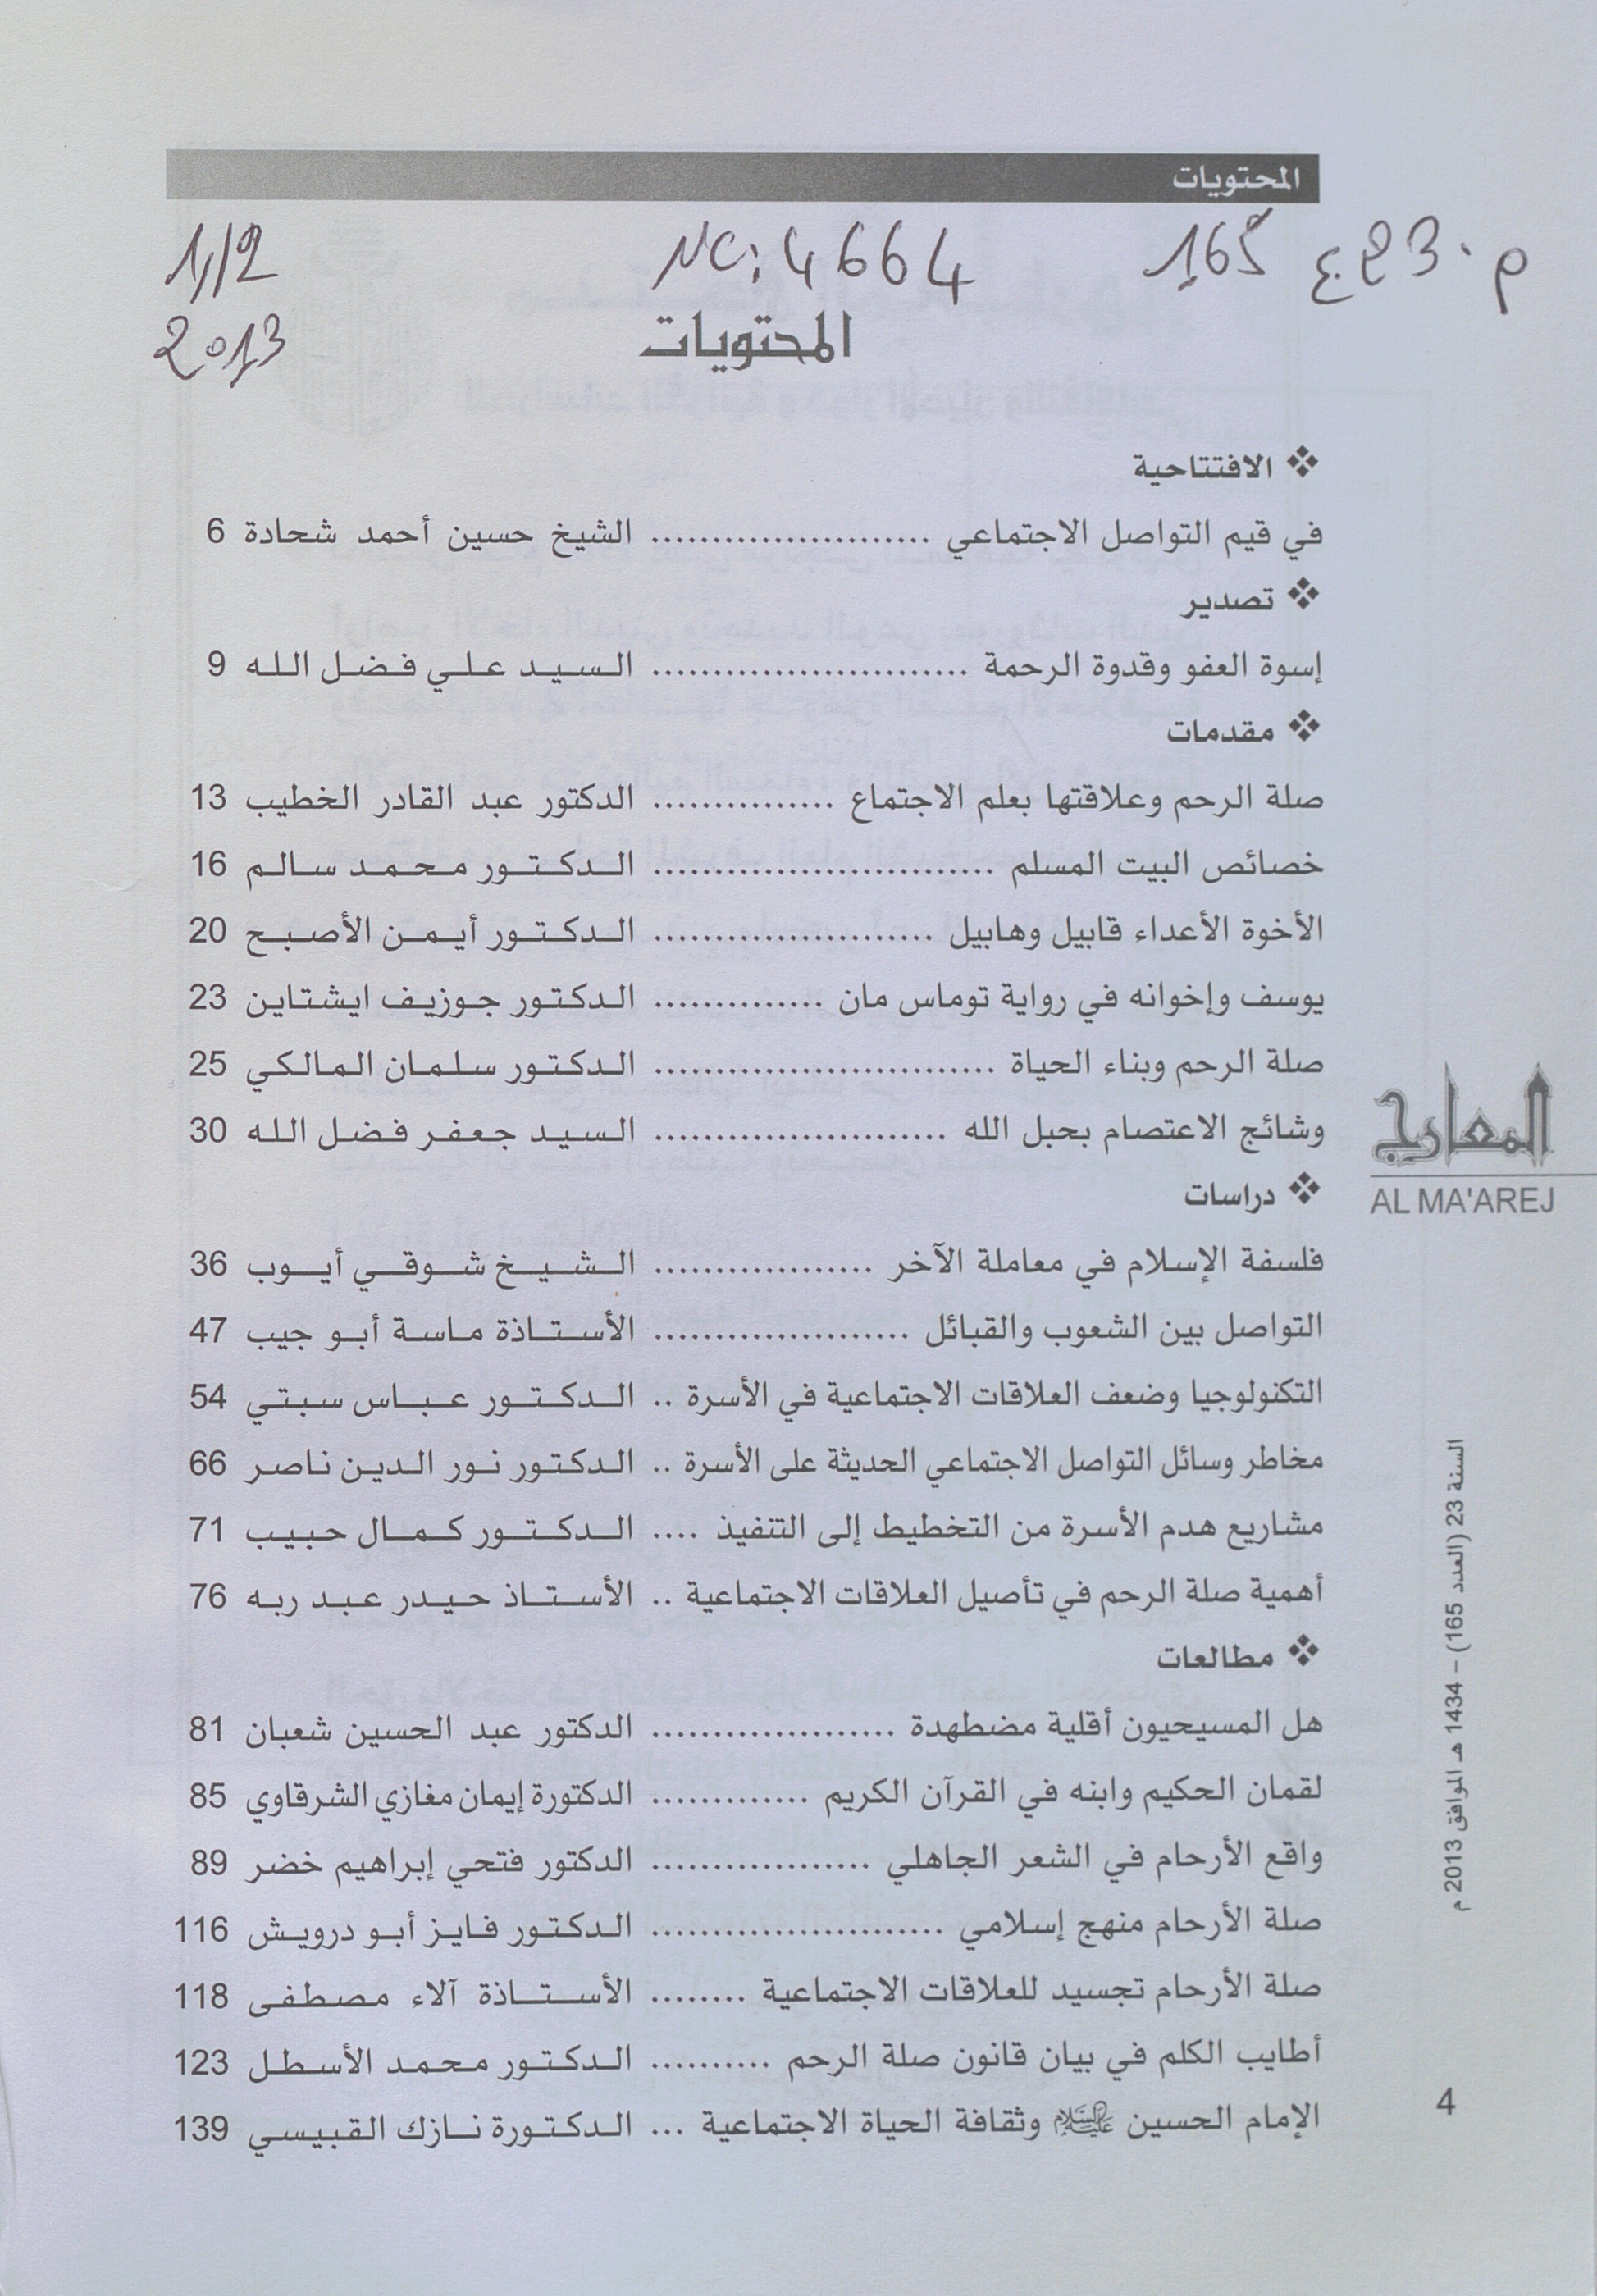 المحتويات
م. 23 ع 165 NC: 4664 1/2
2013
المحتويات
❖ الافتتاحية
في قيم التواصل الاجتماعي ....................... الشيخ حسين أحمد شحادة 6
❖ تصدير
إسوة العفو وقدوة الرحمة .......................... السيد علي فضل الله 9
❖ مقدمات
صلة الرحم وعلاقتها بعلم الاجتماع ............... الدكتور عبد القادر الخطيب 13
خصائص البيت المسلم ............................ الدكتور محمد سالم 16
الأخوة الأعداء قابيل وهابيل ....................... الدكتور أيمن الأصبح 20
يوسف وإخوانه في رواية توماس مان .............. الدكتور جوزيف ايشتاين 23
صلة الرحم وبناء الحياة ............................ الدكتور سلمان المالكي 25
وشائج الاعتصام بحبل الله ........................ السيد جعفر فضل الله 30
❖ دراسات
فلسفة الإسلام في معاملة الآخر .................. الشيخ شوقي أيوب 36
التواصل بين الشعوب والقبائل ..................... الأستاذة ماسة أبو جيب 47
التكنولوجيا وضعف العلاقات الاجتماعية في الأسرة .. الدكتور عباس سبتي 54
مخاطر وسائل التواصل الاجتماعي الحديثة على الأسرة .. الدكتور نور الدين ناصر 66
مشاريع هدم الأسرة من التخطيط إلى التنفيذ .... الدكتور كمال حبيب 71
أهمية صلة الرحم في تأصيل العلاقات الاجتماعية .. الأستاذ حيدر عبد ربه 76
❖ مطالعات
هل المسيحيون أقلية مضطهدة .................... الدكتور عبد الحسين شعبان 81
لقمان الحكيم وابنه في القرآن الكريم ............. الدكتورة إيمان مغازي الشرقاوي 85
واقع الأرحام في الشعر الجاهلي .................. الدكتور فتحي إبراهيم خضر 89
صلة الأرحام منهج إسلامي ........................ الدكتور فايز أبو درويش 116
صلة الأرحام تجسيد للعلاقات الاجتماعية ........ الأستاذة آلاء مصطفى 118
أطايب الكلم في بيان قانون صلة الرحم .......... الدكتور محمد الأسطل 123
الإمام الحسين عليه السلام وثقافة الحياة الاجتماعية ... الدكتورة نازك القبيسي 139
المعارج
AL MA'AREJ
السنة 23 (العدد 165) – 1434 هـ الموافق 2013 م
4